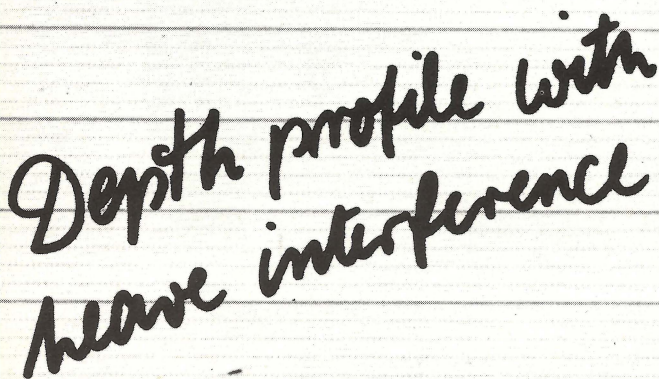 Depth profile with
heave interference